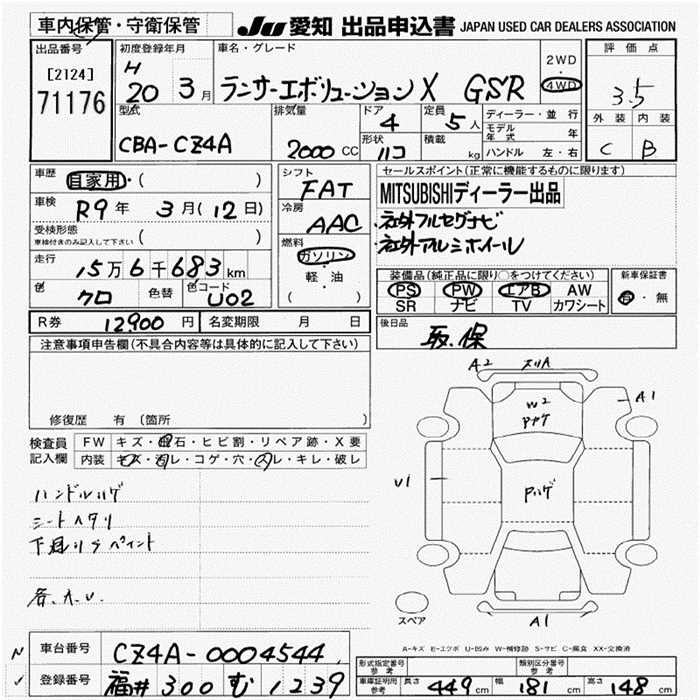 車内保管・守衛保管
JU 愛知 出品申込書 JAPAN USED CAR DEALERS ASSOCIATION
出品番号
[2124]
71176
初度登録年月
H
20 3月
車名・グレード
ランサーエボリューション X GSR
2WD
・
4WD
評価点
3.5
外装 内装
C B
型式
CBA-CZ4A
排気量
2000 CC
ドア
4
形状
ハコ
定員
5人
積載
kg
ディーラー・並行
モデル年式 年
ハンドル 左・右
車歴
自家用・( )
車検
R9年 3月(12日)
受検形態
車検付きのみ記入して下さい ( )
走行
15万6千683km
色
クロ
色替
色コード
U02
シフト
FAT
冷房
AAC
燃料
ガソリン
軽・油
( )
セールスポイント(正常に機能するものに限ります)
MITSUBISHIディーラー出品
・社外フルセグナビ
・社外アルミホイール
装備品(純正品に限り○をつけてください)
PS PW エアB AW
SR ナビ TV カワシート
新車保証書
有・無
後日品
取.保
R券 12900円
名変期限 月 日
注意事項申告欄(不具合内容等は具体的に記入して下さい)
修復歴 有 (箇所 )
検査員
記入欄
FW キズ・飛石・ヒビ割・リペア跡・X要
内装 キズ・汚レ・コゲ・穴・スレ・キレ・破レ
ハンドルハゲ
シートヘタリ
下廻りサペイント
各.A.U.
A2
スリA
W2
A1
U1
Pハゲ
A1
スペア
A-キズ E-エクボ U-凹み W-補修跡 S-サビ C-腐食 XX-交換済
車台番号
CZ4A-0004544
登録番号
福井 300 む 1239
形式指定番号
参考
類別区分番号
参考
車庫証明用
参考
長さ 449cm
幅 181cm
高さ 148cm